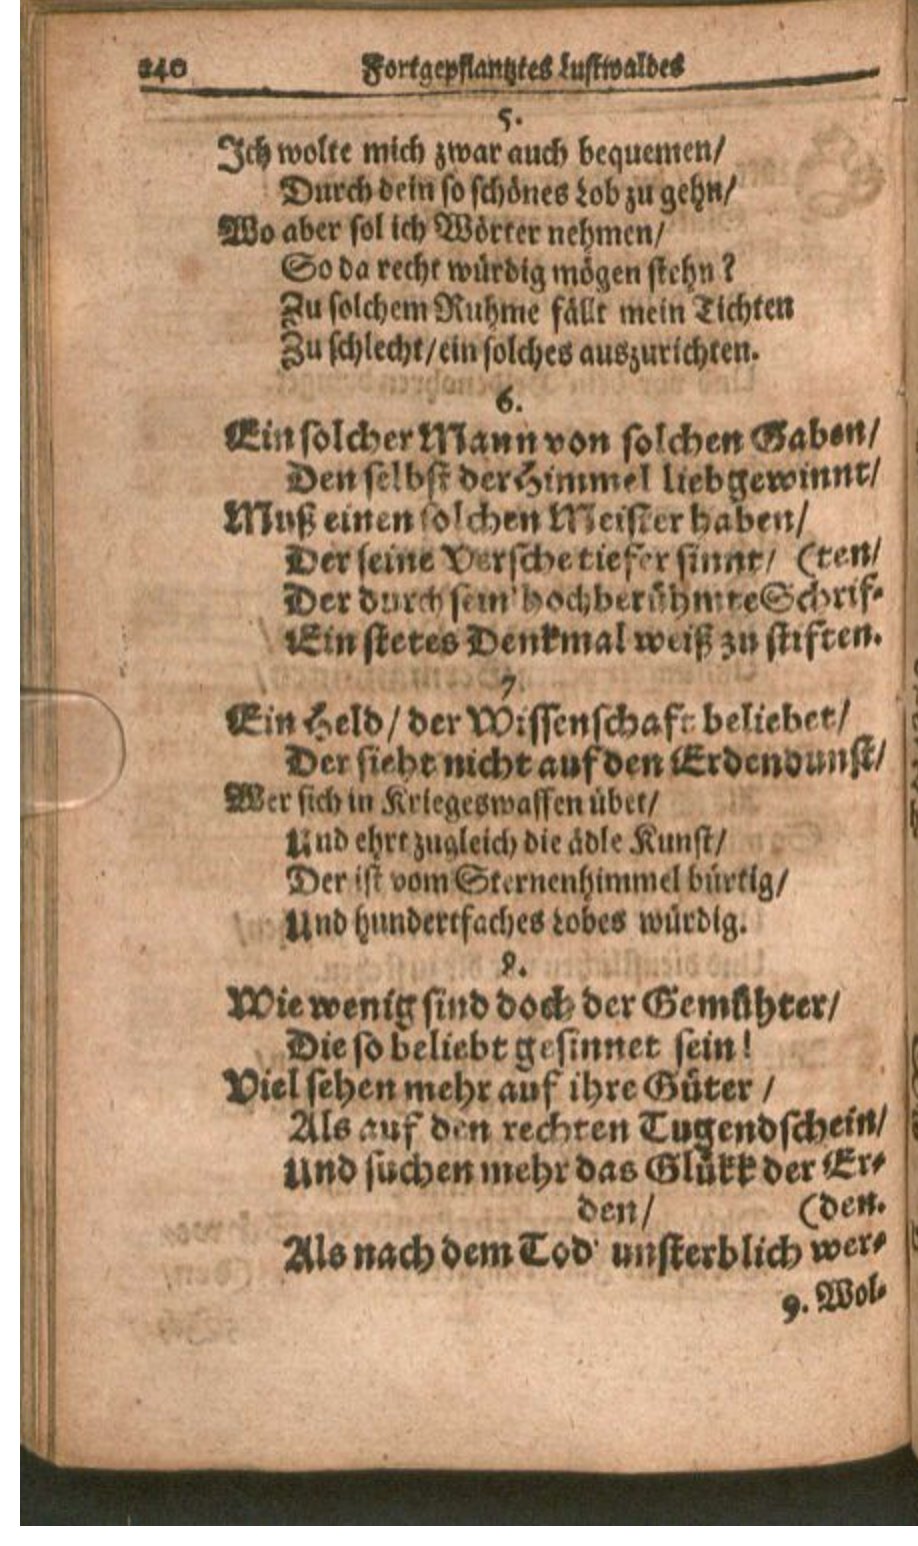 240 Fortgepflantztes Lustwaldes
5.
Ich wolte mich zwar auch bequemen/
Durch dein so schönes Lob zu gehn/
Wo aber sol ich Wörter nehmen/
So da recht würdig mögen stehn?
Zu solchem Ruhme fällt mein Tichten
Zu schlecht/ ein solches auszurichten.
6.
Ein solcher Mann von solchen Gaben/
Den selbst der Himmel liebgewinnt/
Muß einen solchen Meister haben/
Der seine Versche tiefer sinnt/ (ten/
Der durch sein hochberühmte Schrif-
Ein stetes Denkmal weiß zu stiften.
7.
Ein Held/ der Wissenschaft beliebet/
Der sieht nicht auf den Erdendunst/
Wer sich in Kriegeswaffen übet/
Und ehrt zugleich die ädle Kunst/
Der ist vom Sternenhimmel bürtig/
Und hundertfaches Lobes würdig.
8.
Wie wenig sind doch der Gemühter/
Die so beliebt gesinnet sein!
Viel sehen mehr auf ihre Güter /
Als auf den rechten Tugendschein/
Und suchen mehr das Glükk der Er-
den/ (den.
Als nach dem Tod' unsterblich wer-
9. Wol-